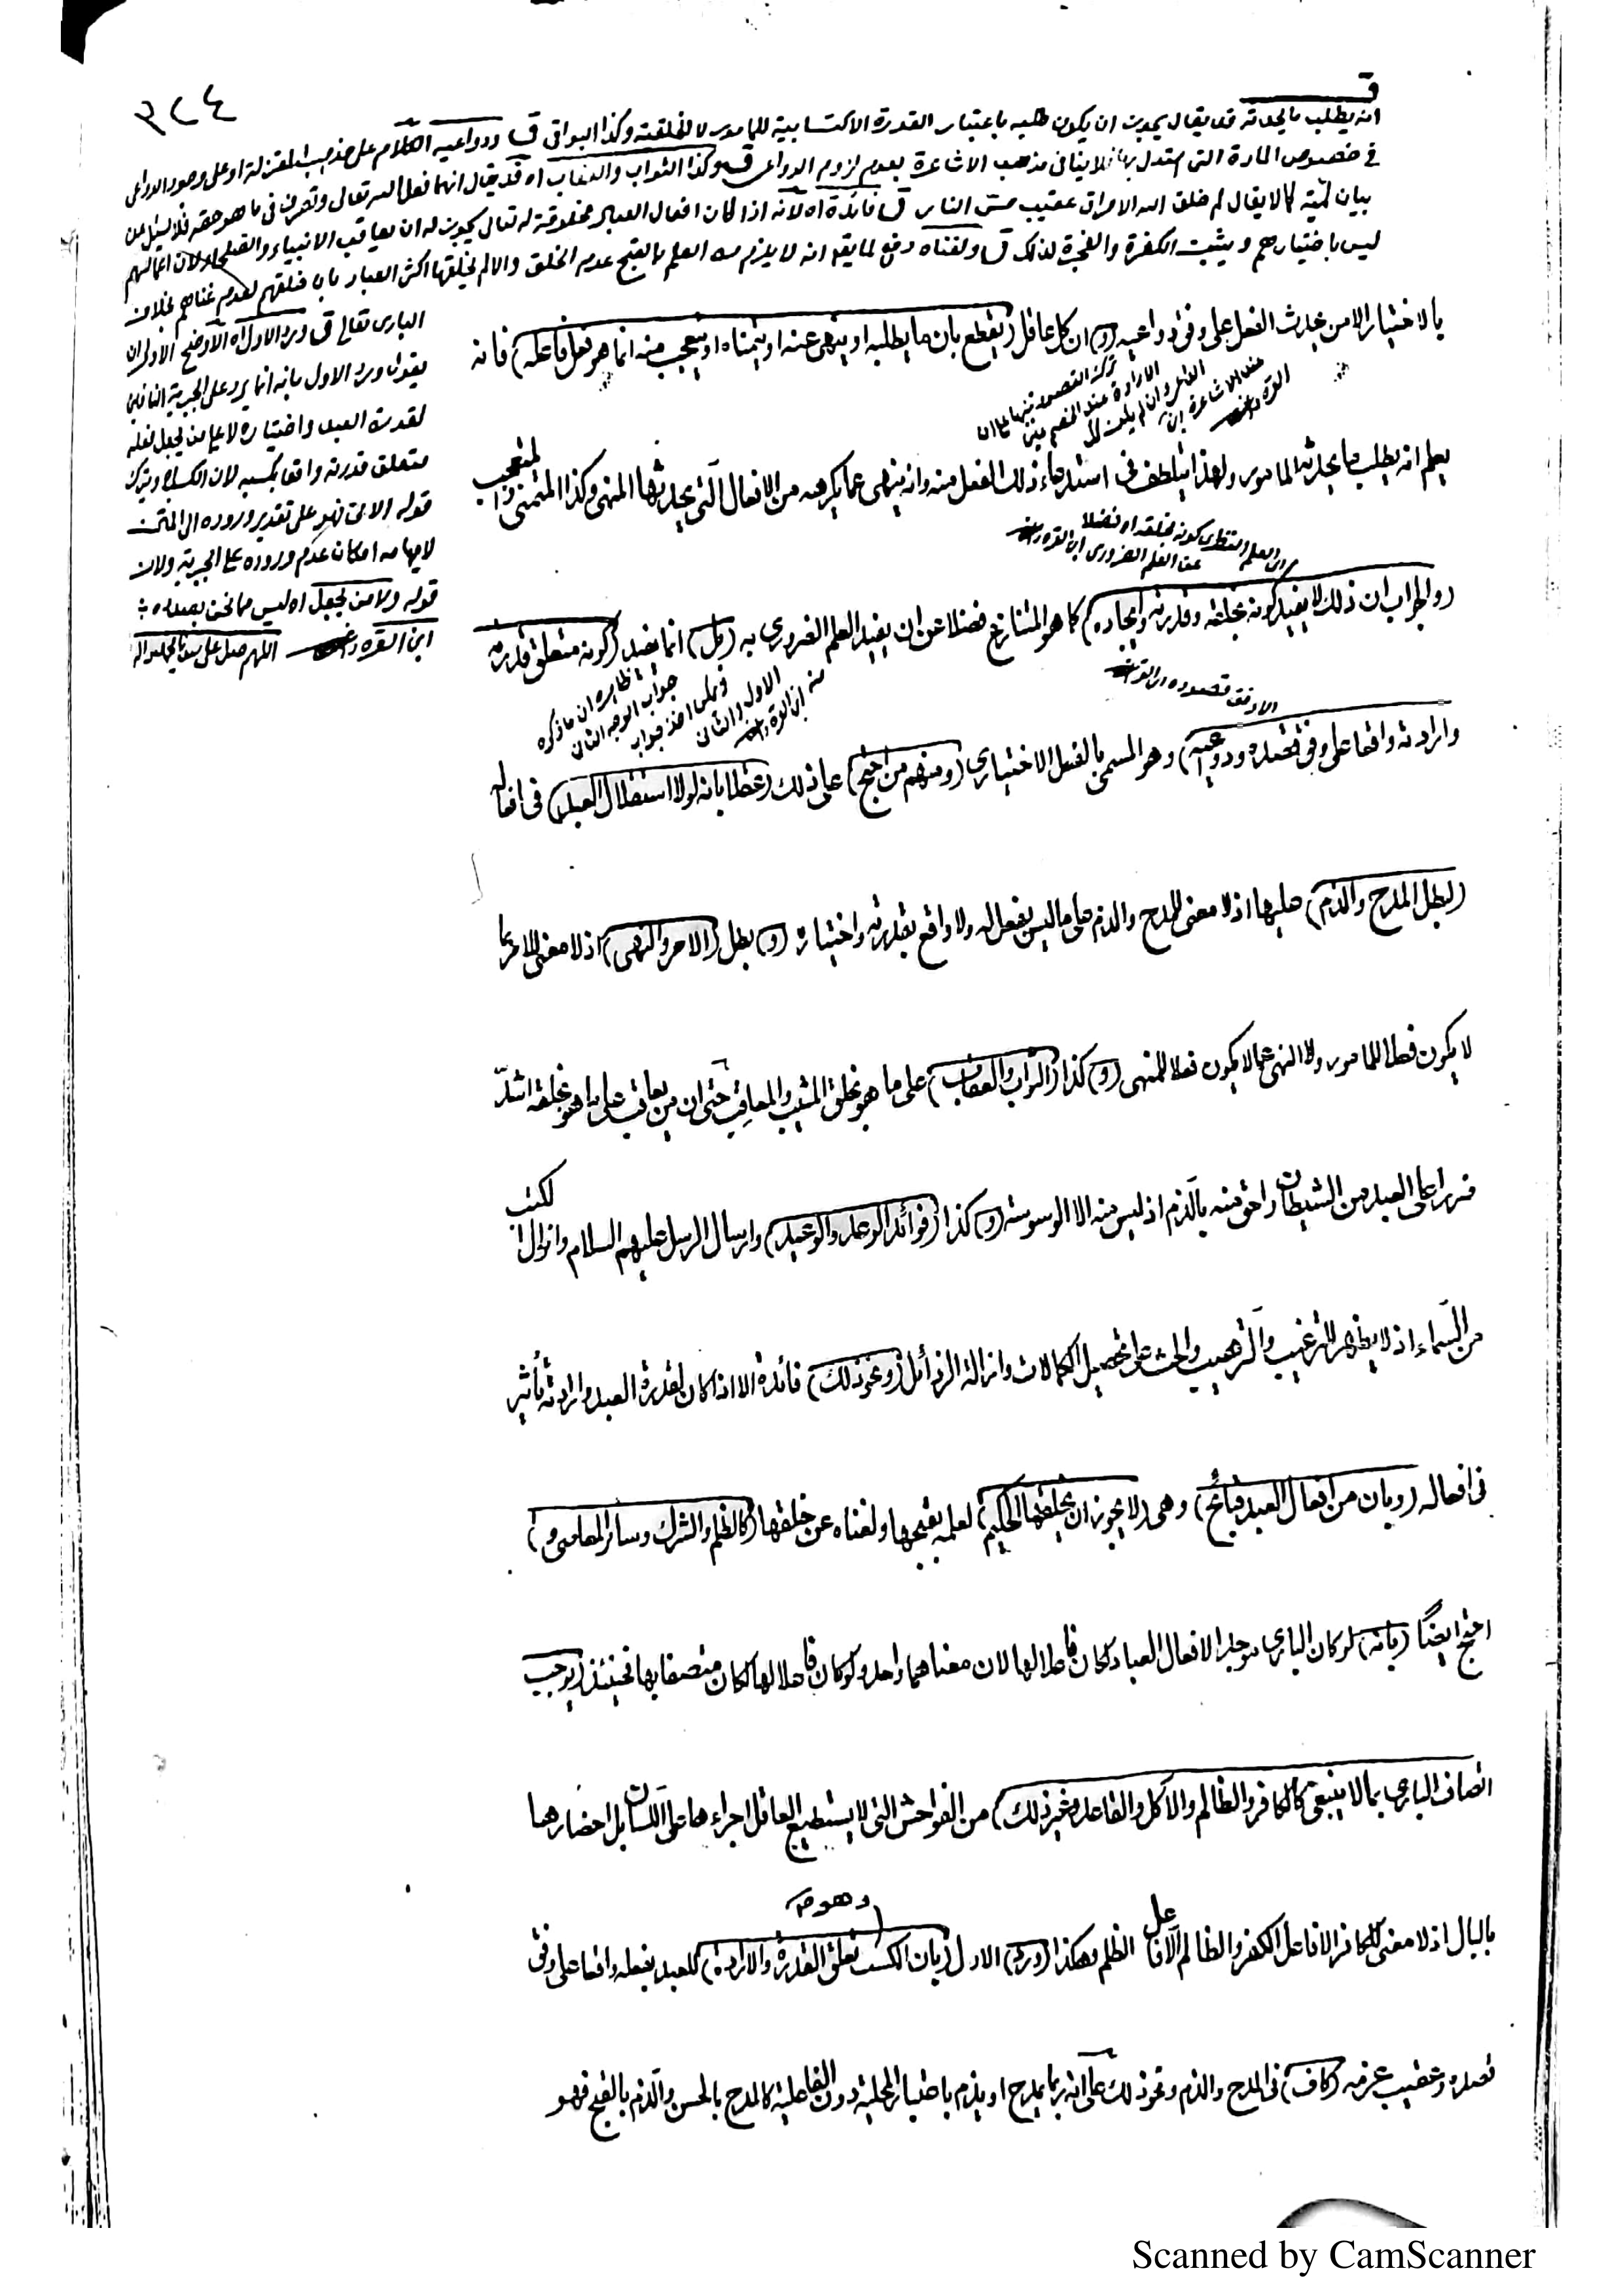 ٣٢٤
ق
انه يطلب ما يحدثه قد يقال يجوز ان يكون طلبه باعتبار القدرة الاكتسابية للمامور لا لخلقيته وكذا البواقى ق ودواعيه الكلام على مذهب المعتزلة او على وجود الدواعى
فى خصوص المادة التى استدل بها فلا ينافى مذهب الاشاعرة بعدم لزوم الدواعى ق وكذا الثواب والعقاب اه قد يقال انهما فعل الله تعالى وتصرف فى ما هو حقه فلا يسئل عن
بيان لميّته كما لا يقال لم خلق الله الاحراق عقيب مس النار ق فائدة اه لانه اذا كان افعال العباد مخلوقة له تعالى يجوز له ان يعاقب الانبياء والصلحاء لان اعمالهم
ليس باختيارهم ويثيب الكفرة والفجرة لذلك ق ولغناه دفع لما يقو انه لا يلزم من العلم بالقبح عدم الخلق والا لم يخلقها اكثر العباد بان خلقهم لعدم غناهم بخلاف
البارى تعالى ق ورد الاول اه الاوضح الاولى ان
يقول ورد الاول بانه انما يرد على الجبرية النافين
لقدرة العبد واختياره لا على من يجعل فعله
متعلق قدرته واقعا بكسبه لان الكسب اه ويترك
قوله الاتى فهو على تقدير وروده الى المتن
لايهامه امكان عدم وروده على الجبرية ولان
قوله ولا من يجعل اه ليس مما نحن بصدده :
ابن القره داغى اللهم صل على سيدنا محمد واله
بالاختيار الا من يحدث الفعل على وفق دواعيه (و) ان كل عاقل (يقطع بان ما يطلبه او ينهى عنه او يتمناه او يتعجب منه انما هو فعل فاعله) فانه
يعلم انه يطلب ما يحدثه المامور ولهذا يتلطف فى استدعاء ذلك الفعل منه وانه ينهى عما يكرهه من الافعال التى يحدثها المنهى وكذا المتمنى والمتعجب
اى العلم النظرى كونه بخلقه اه فضلا
عن العلم الضرورى ابن القره داغى
(والجواب ان ذلك لا يفيد كونه بخلقه وقدرته وايجاده) كما هو المتنازع فضلا عن ان يفيد العلم الضرورى به (بل) انما يفيد (كونه متعلق قدرته
الاوفق قصوده ابن القره داغى
ظاهره ان ما ذكره
جواب الوجه الثانى
منه ابن القره داغى
وارادته واقعا على وفق قصده ودواعيه) وهو المسمى بالفعل الاختيارى (ومنهم من احتج) على ذلك (عقلا بانه لولا استقلال العبد) فى افعاله
(لبطل المدح والذم) عليها اذ لا معنى للمدح والذم على ما ليس بفعل له ولا واقع بقدرته واختياره (و) بطل (الامر والنهى) اذ لا معنى للامر بما
لا يكون فعلا للمامور ولا النهى عما لا يكون فعلا للمنهى (و) كذا (الثواب والعقاب) على ما هو بخلق المثيب والمعاقب حتى ان من يعاقب على ما هو بخلقه اشدّ
ضررا على العبد من الشيطان واحق منه بالذم اذ ليس منه الا الوسوسة (و) كذا (فوائد الوعد والوعيد) وارسال الرسل عليهم السلام وانزال الكتب
من السماء اذ لا يظهر للترغيب والترهيب والحث على تحصيل الكمالات وازالة الرذائل (ونحو ذلك) فائدة الا اذا كان لقدرة العبد وارادته تأثير
فى افعاله (وبان من افعال العبد قبائح) وهى (لا يجوز ان يخلقها الحكيم) لعلمه بقبحها ولغناه عن خلقها (كالظلم والشرك وسائر المعاصى و)
احتج ايضًا (بانه) لو كان البارى موجدا لافعال العباد لكان فاعلا لها لان معناهما واحد ولو كان فاعلا لها لكان متصفا بها فحينئذ (يوجب
اتصاف البارى بما لا ينبغى كالكافر والظالم والآكل والقاعد وغير ذلك) من الفواحش التى لا يستطيع العاقل اجراءها على اللسان بل احضارها
بالبال اذ لا معنى للكافر الا فاعل الكفر والظالم الا فاعل الظلم وهكذا (ورد) الاول (بان الكسب وهو تعلق القدرة والارادة) للعبد بفعله واقعا على وفق
قصده وعقيب عزمه (كاف) فى المدح والذم ونحو ذلك على انه ربما يمدح او يذم باعتبار المحلية دون الفاعلية كالمدح بالحسن والذم بالقبح فهو
Scanned by CamScanner